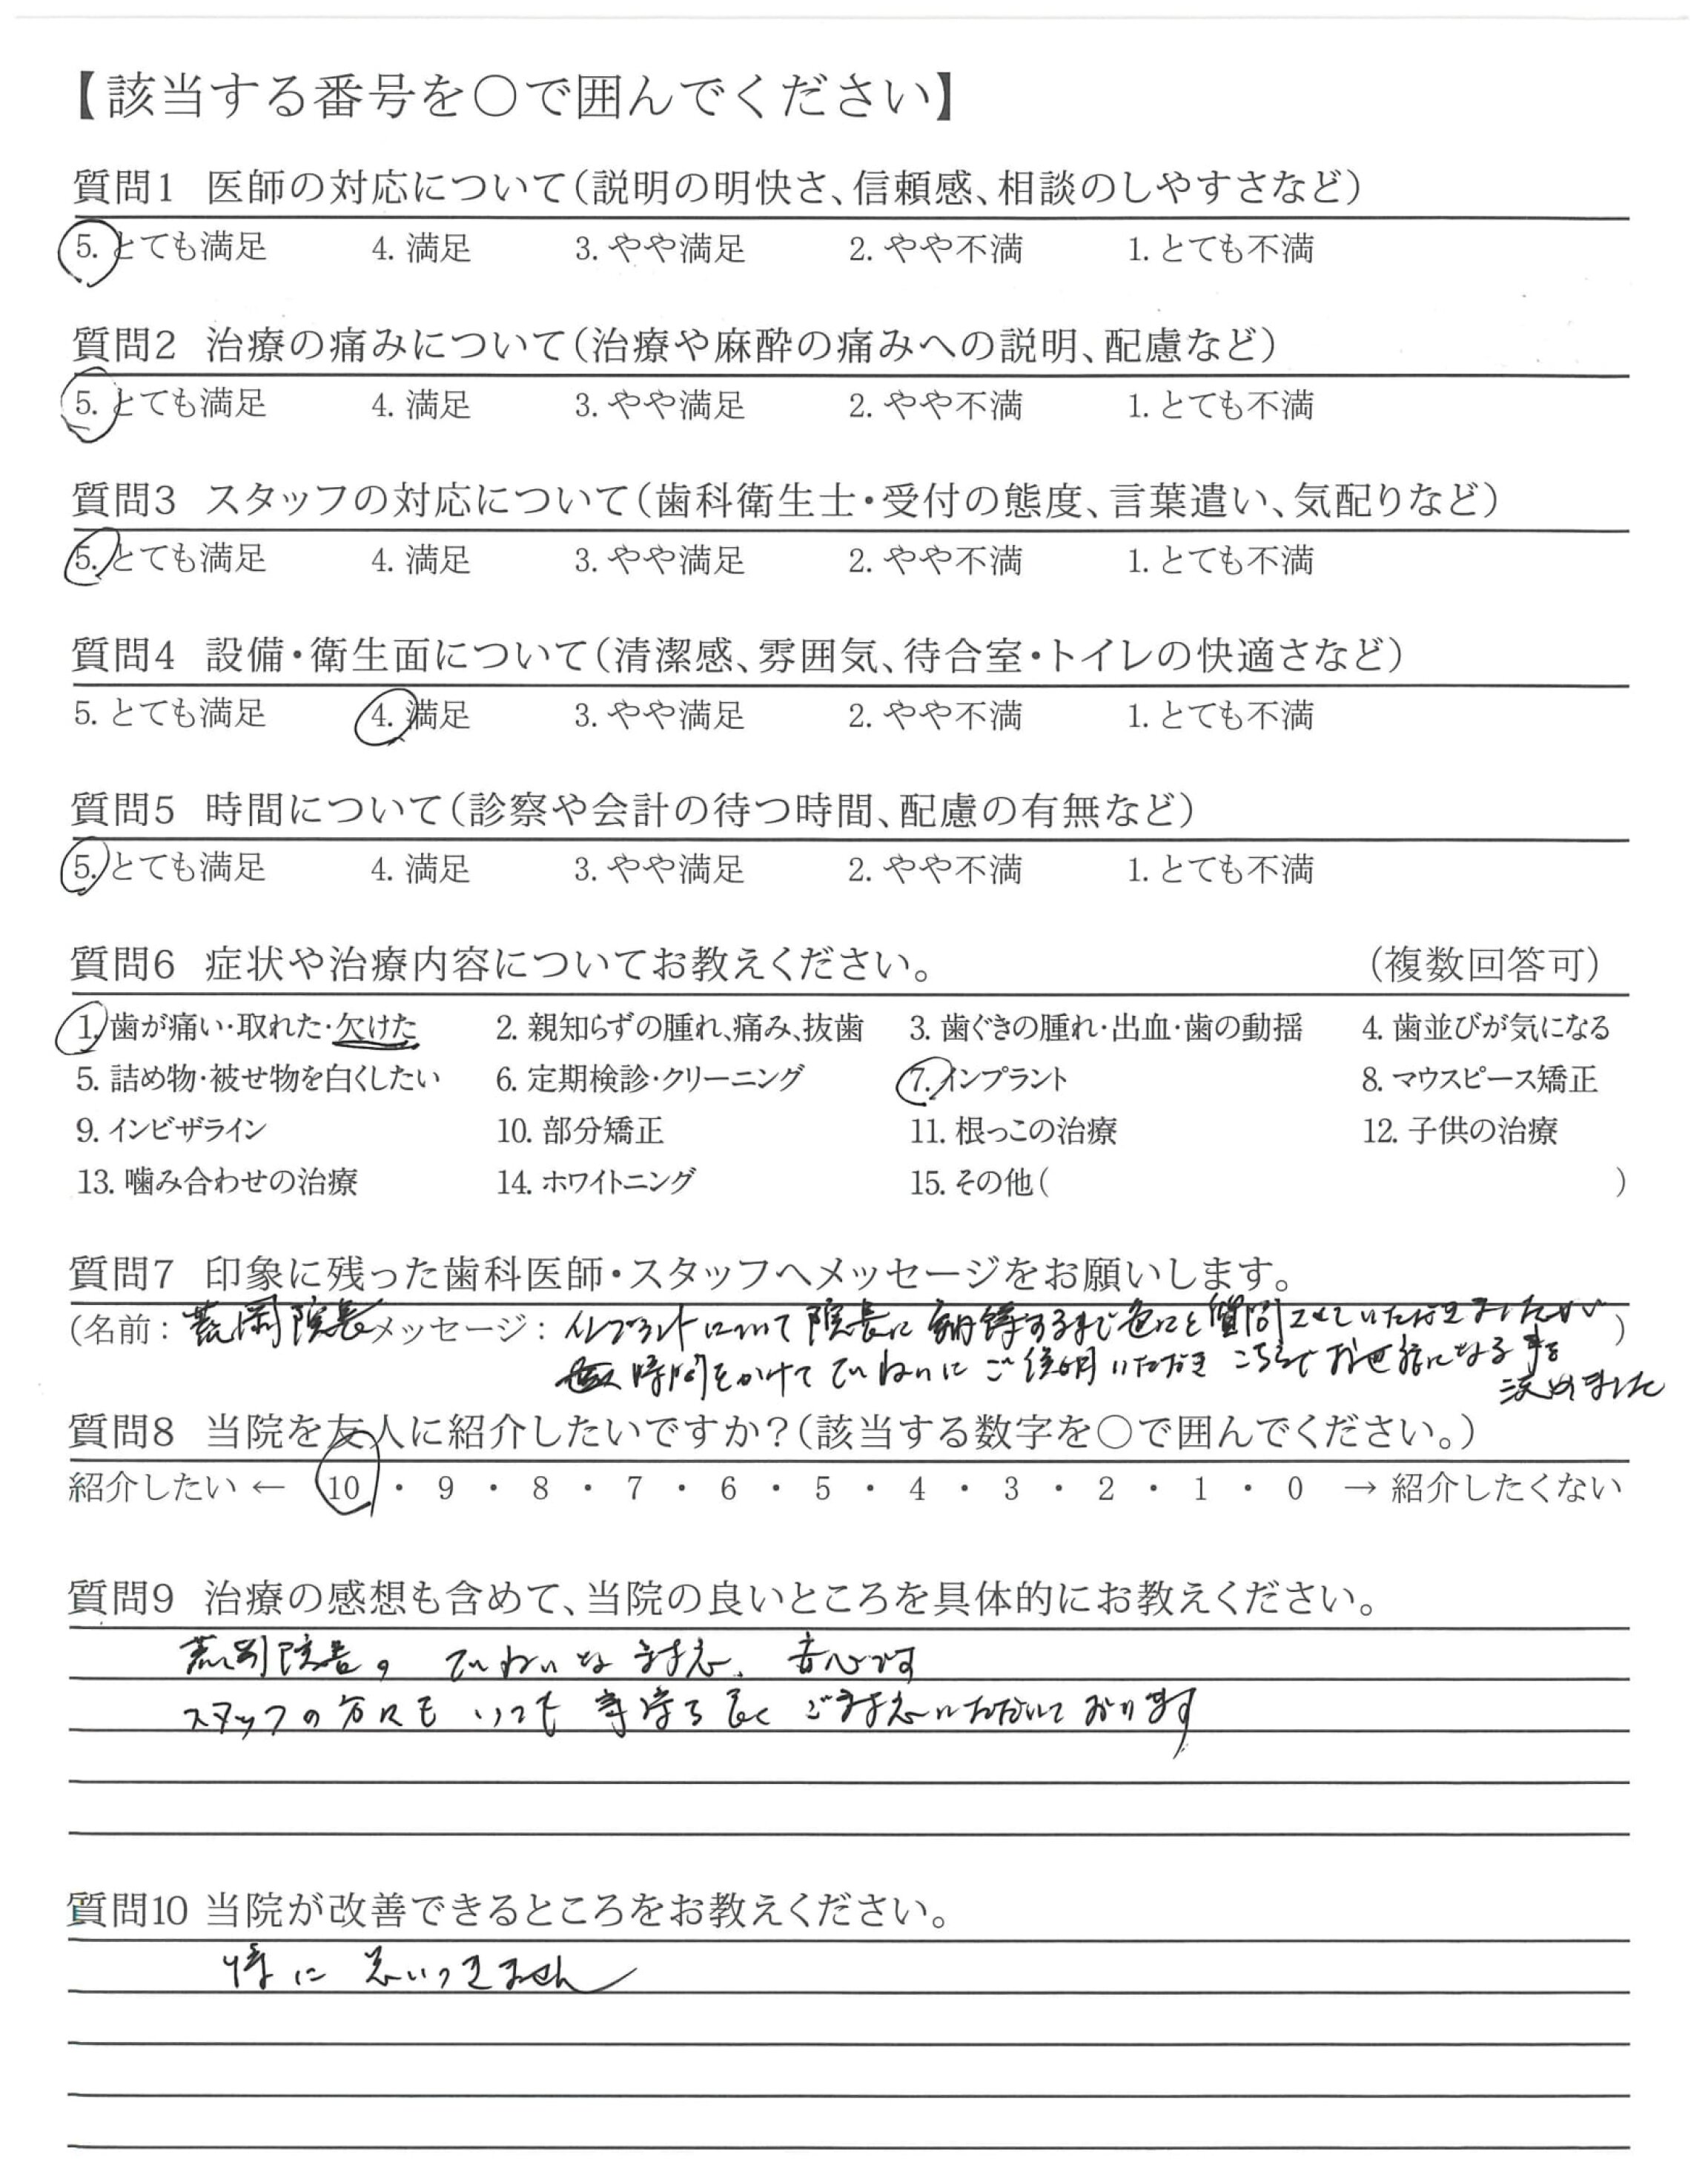 【該当する番号を○で囲んでください】
質問1 医師の対応について(説明の明快さ、信頼感、相談のしやすさなど)
5. とても満足 4. 満足 3. やや満足 2. やや不満 1. とても不満
質問2 治療の痛みについて(治療や麻酔の痛みへの説明、配慮など)
5. とても満足 4. 満足 3. やや満足 2. やや不満 1. とても不満
質問3 スタッフの対応について(歯科衛生士・受付の態度、言葉遣い、気配りなど)
5. とても満足 4. 満足 3. やや満足 2. やや不満 1. とても不満
質問4 設備・衛生面について(清潔感、雰囲気、待合室・トイレの快適さなど)
5. とても満足 4. 満足 3. やや満足 2. やや不満 1. とても不満
質問5 時間について(診察や会計の待つ時間、配慮の有無など)
5. とても満足 4. 満足 3. やや満足 2. やや不満 1. とても不満
質問6 症状や治療内容についてお教えください。 (複数回答可)
1. 歯が痛い・取れた・欠けた 2. 親知らずの腫れ、痛み、抜歯 3. 歯ぐきの腫れ・出血・歯の動揺 4. 歯並びが気になる
5. 詰め物・被せ物を白くしたい 6. 定期検診・クリーニング 7. インプラント 8. マウスピース矯正
9. インビザライン 10. 部分矯正 11. 根っこの治療 12. 子供の治療
13. 噛み合わせの治療 14. ホワイトニング 15. その他( )
質問7 印象に残った歯科医師・スタッフへメッセージをお願いします。
(名前: 荒岡院長 メッセージ: インプラントについて院長に納得するまで色々と質問させていただきましたが )
時間をかけてていねいにご説明いただきこちらでお世話になる事を
決めました
質問8 当院を友人に紹介したいですか?(該当する数字を○で囲んでください。)
紹介したい ← 10 ・ 9 ・ 8 ・ 7 ・ 6 ・ 5 ・ 4 ・ 3 ・ 2 ・ 1 ・ 0 → 紹介したくない
質問9 治療の感想も含めて、当院の良いところを具体的にお教えください。
荒岡院長の ていねいな対応、安心です
スタッフの方々も いつも 気持ち良く ご対応いただいております
質問10 当院が改善できるところをお教えください。
特に 思いつきません